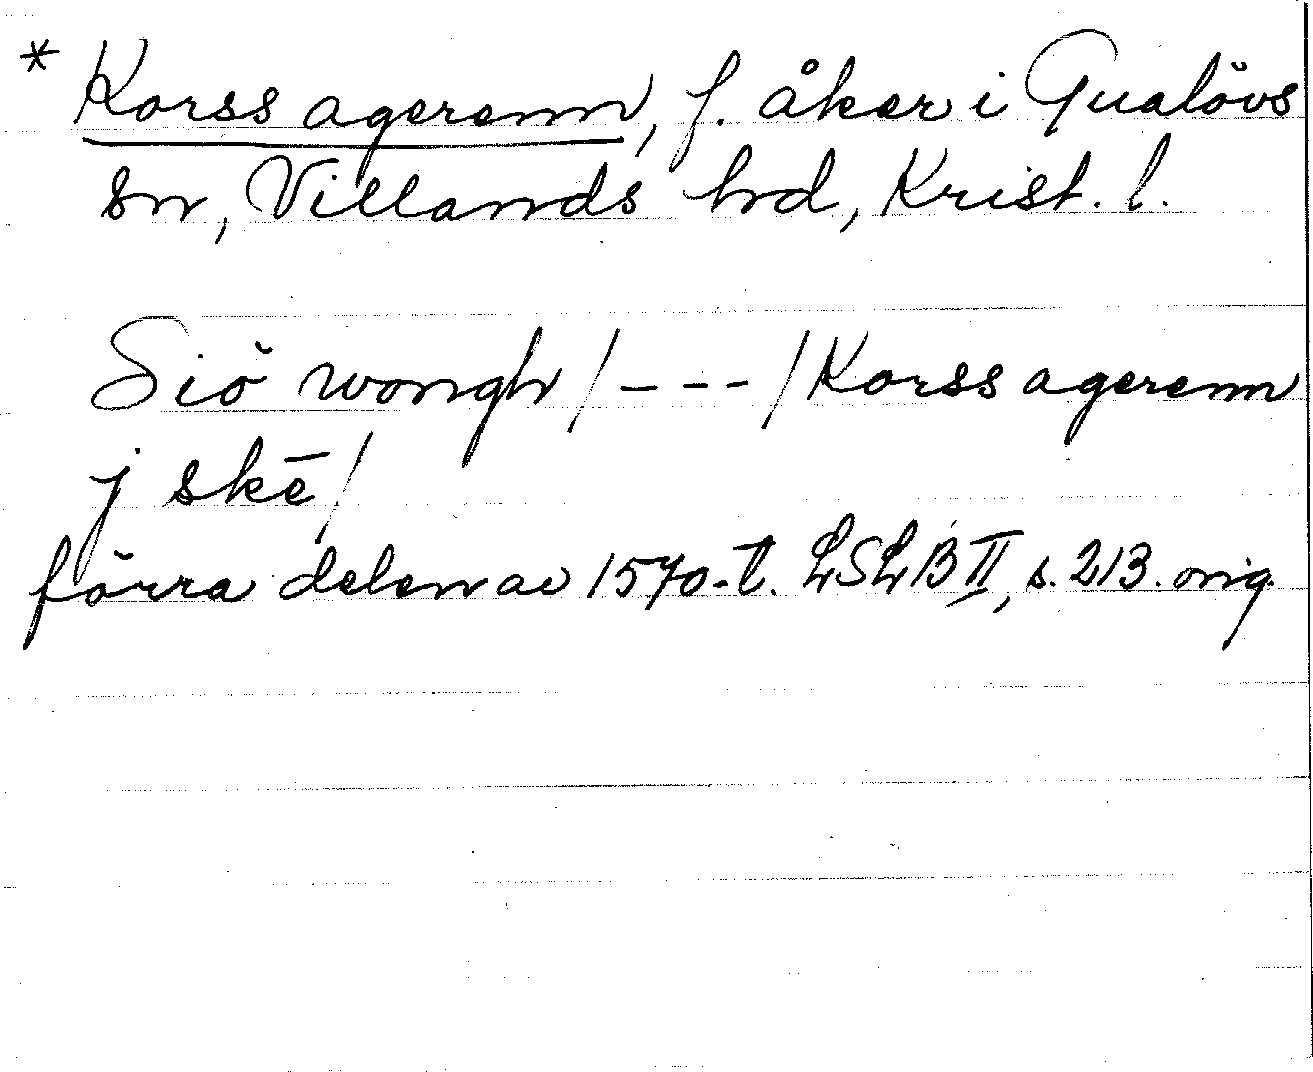 * Korss agerenn, f. åker i Gualövs
sn, Villands hrd, Krist. l.
Siö wongh /---/ Korss agerenn
j skē /
förra delen av 1570-t. LSLB II, s. 213. orig.